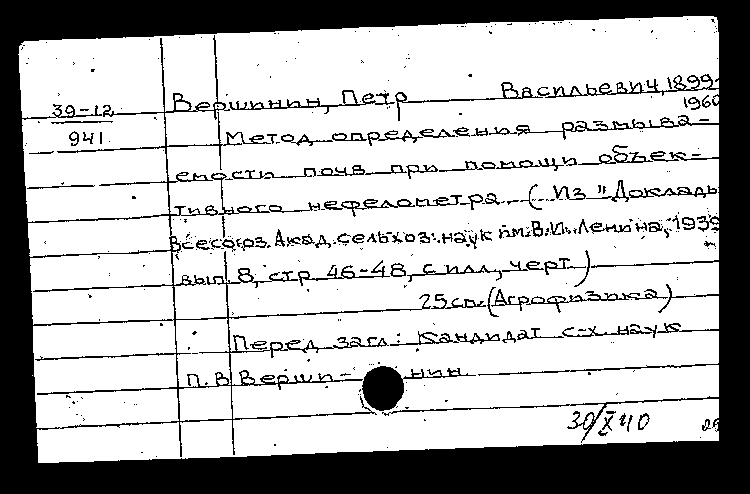 39-12
941
Вершинин, Петр Васильевич, 1899-
1960
Метод определения размыва-
емости почв при помощи объек-
тивного нефелометра. (Из "Доклады
Всесоюз. Акад. сельхоз. наук им. В.И. Ленина, 1939
вып. 8, стр. 46-48, с илл., черт.)
25 см. (Агрофизика)
Перед загл.: Кандидат с-х. наук
П.В. Верши-нин.
30/X 40